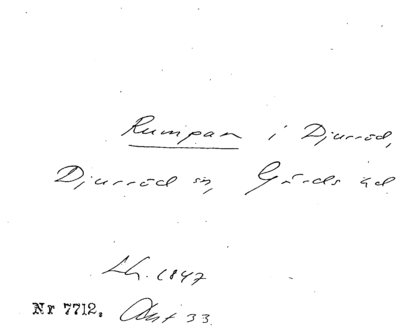 Rumpan i Djurröd,
Djurröd sn, Gärds hd
Lh. 1847
Nr 7712. Akt 33.